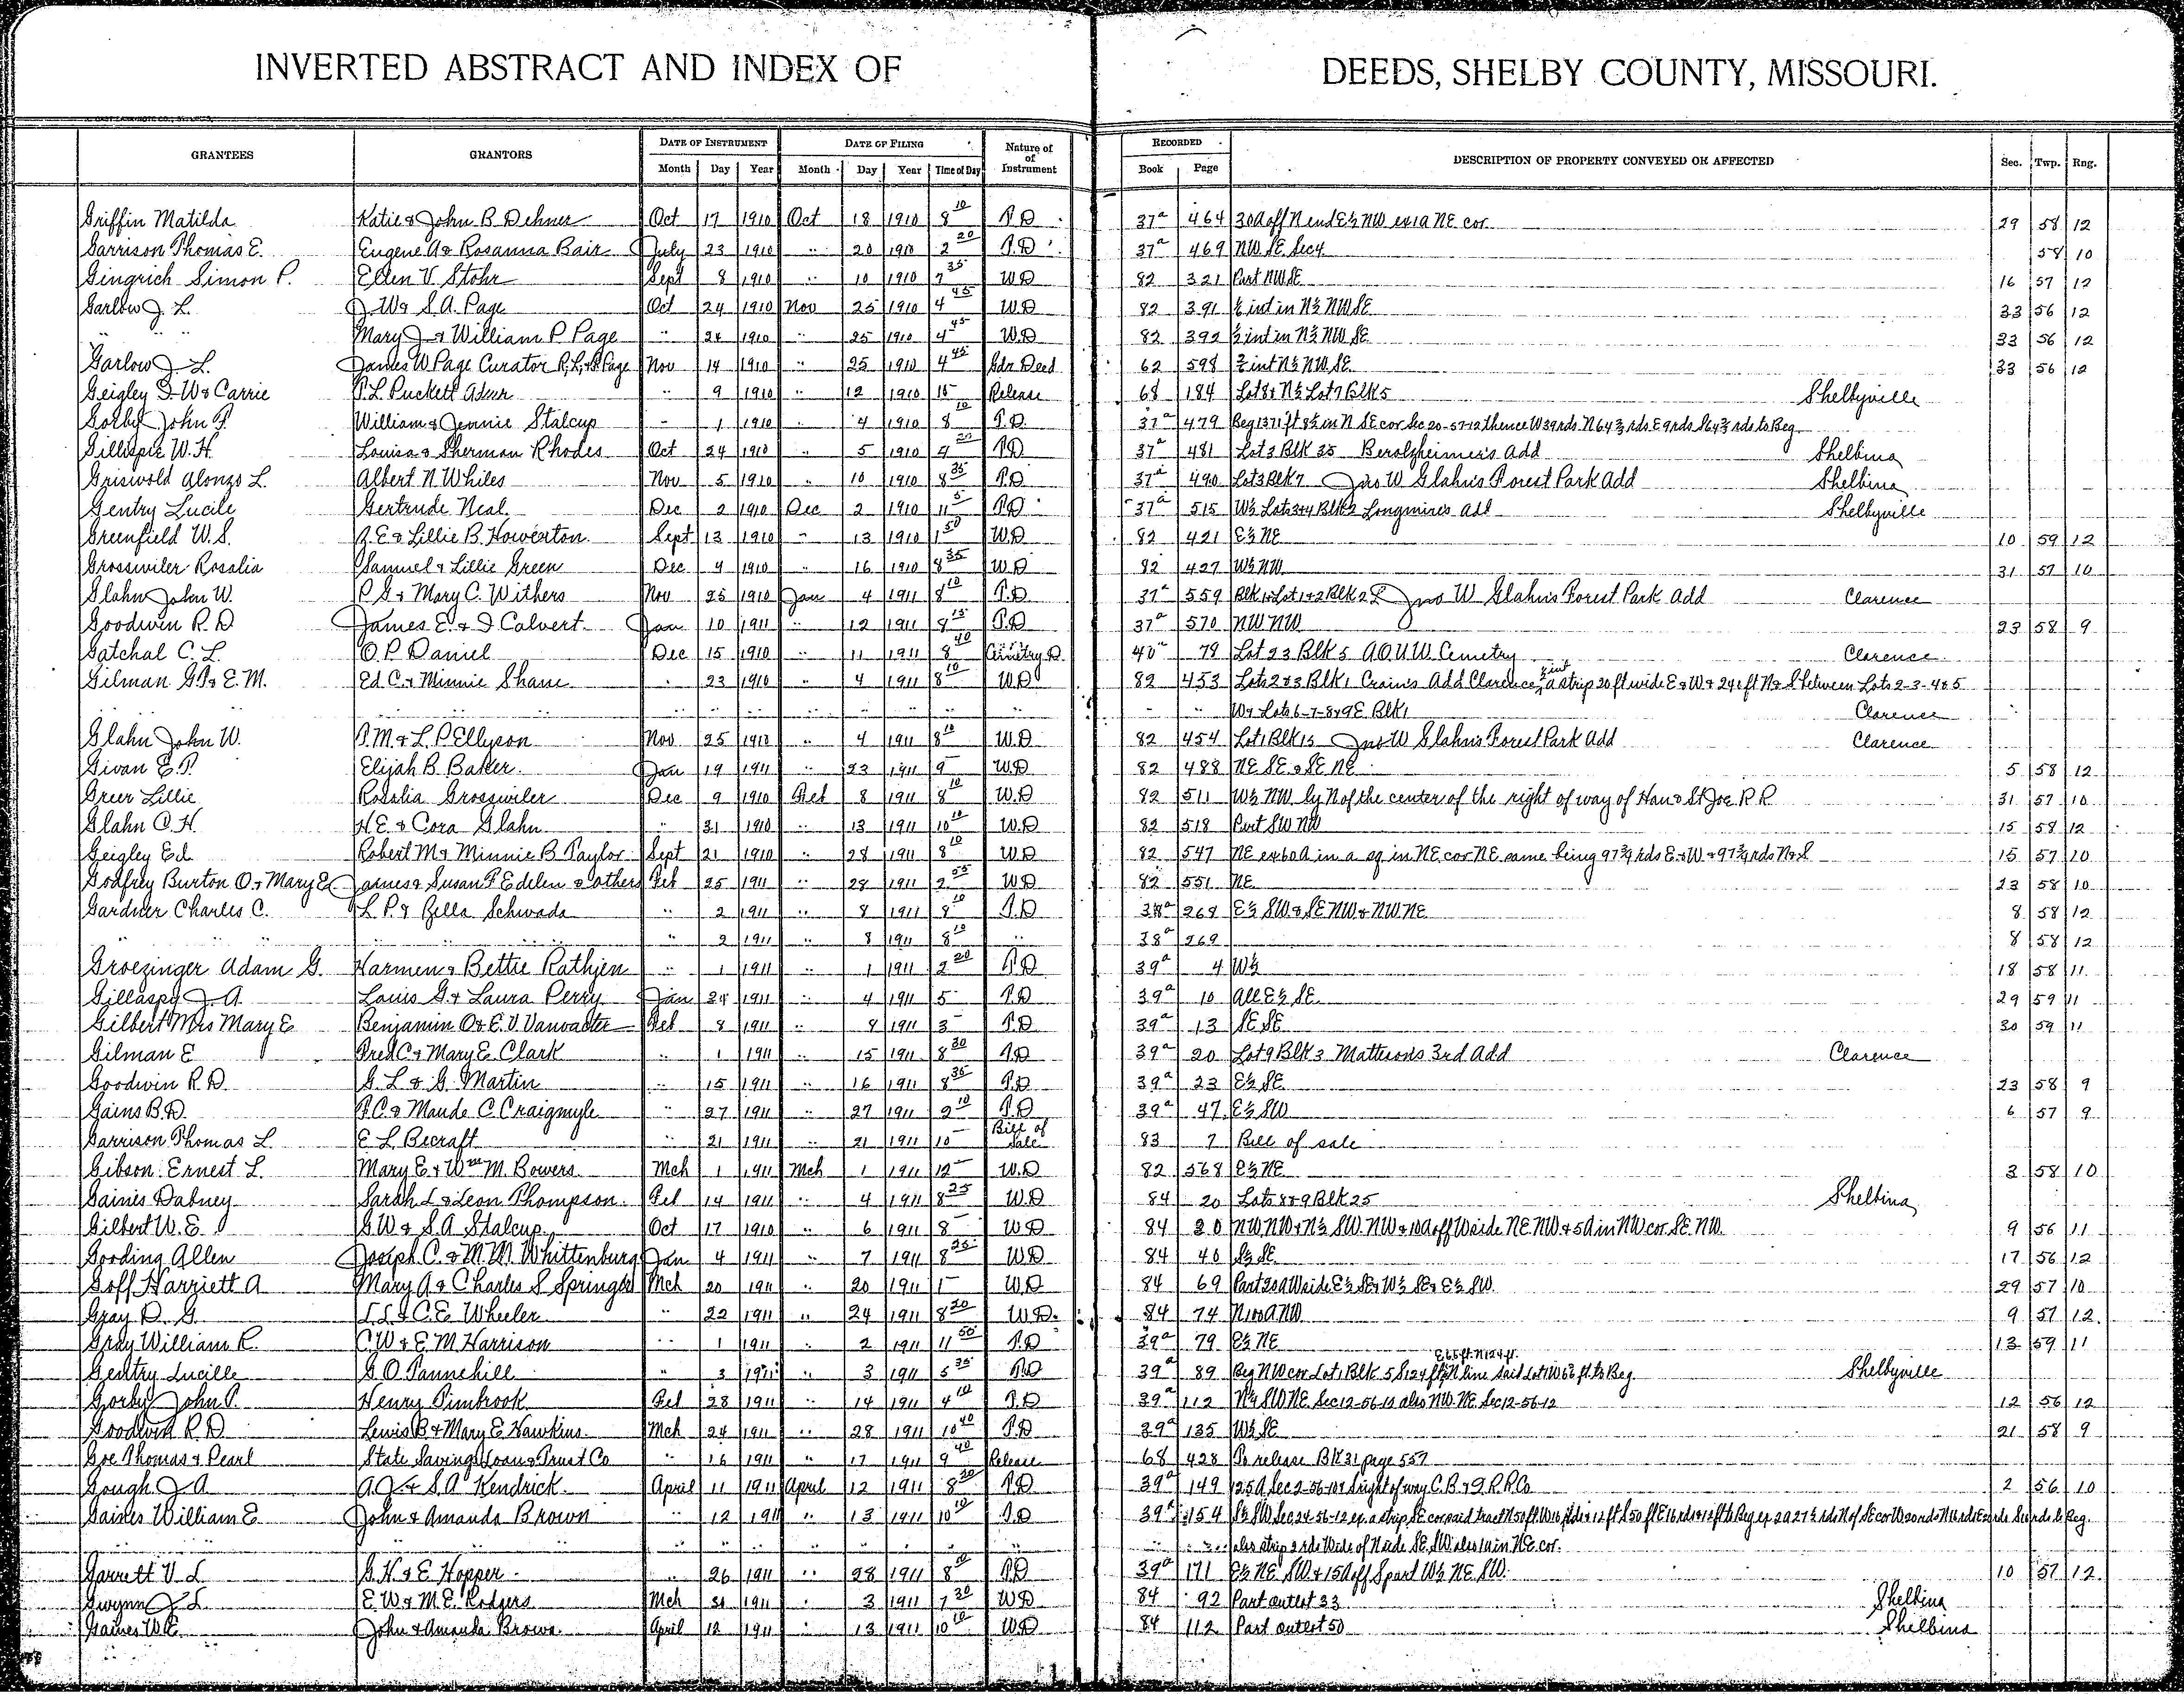 INVERTED ABSTRACT AND INDEX OF DEEDS, SHELBY COUNTY, MISSOURI.
GRANTEES GRANTORS DATE OF INSTRUMENT DATE OF FILING Nature of of Instrument RECORDED DESCRIPTION OF PROPERTY CONVEYED OR AFFECTED Sec. Twp. Rng.
Month Day Year Month Day Year Time of Day Book Page
Griffin Matilda Katie & John B Dehner Oct 17 1910 Oct 18 1910 8 10 T.D 37a 464 30A off N end E½ NW ex 1a NE cor. 29 58 12
Garrison Thomas E. Eugene A & Rosanna Bair July 23 1910 " 20 1910 2 20 T.D 37a 469 NW SE Sec 4 58 10
Gingrich Simon P. Ellen V. Stohr Sept 8 1910 " 10 1910 7 35 W.D 82 321 Part NW SE 16 57 12
Garlow J. L. J W & S.A. Page Oct 24 1910 Nov 25 1910 4 45 W.D 82 391 int in N½ NW SE 33 56 12
" " Mary J & William P Page " 24 1910 " 25 1910 4 45 W.D 82 392 int in N½ NW SE 33 56 12
Garlow J. L. James W Page Curator Page Nov 14 1910 " 25 1910 4 45 Gdn Deed 62 598 int N½ NW SE 33 56 12
Geigley I W & Carrie T.L Puckett Admr " 9 1910 " 12 1910 Release 68 184 Lot 8 & N½ Lot 7 Blk 5 Shelbyville
Gorby John P. William & Jennie Stalcup " 1 1910 " 4 1910 8 10 T.D. 37a 479 Beg 1371 ft 8½ in N SE cor Sec 20-57-12 thence W 39 rds N 64⅔ rds E 9 rds S 64⅔ rds to Beg
Gillispie W. H. Louisa & Sherman Rhodes Oct 24 1910 " 5 1910 4 20 T.D 37a 481 Lot 3 Blk 35 Berolzheimer's Add Shelbina
Griswold Alonzo L. Albert N Whiles Nov 5 1910 " 10 1910 8 35 T.D 37a 490 Lot 3 Blk 7 Jno W Glahn's Forest Park Add Shelbina
Gentry Lucile Gertrude Neal Dec 2 1910 Dec 2 1910 11 5 T.D 37a 515 W½ Lots 3&4 Blk 2 Longmire's Add Shelbyville
Greenfield W. S. R.E & Lillie B. Howerton Sept 13 1910 " 13 1910 1 50 W.D 82 421 E½ NE 10 59 12
Grosswiler Rosalia Samuel & Lillie Green Dec 9 1910 " 16 1910 8 35 W.D 82 427 W½ NW 31 57 10
Glahn John W. P G & Mary C. Withers Nov 25 1910 Jan 4 1911 8 10 T.D 37a 559 Blk 1 & Lot 1&2 Blk 2 Jno W Glahn's Forest Park Add Clarence
Goodwin R. D James E. & I Calvert Jan 10 1911 " 12 1911 8 15 T.D 37a 570 NW NW 23 58 9
Gatchal C. L. O.P. Daniel Dec 15 1910 " 11 1911 8 40 Cemetry D. 40a 79 Lot 23 Blk 5 A.O.U.W. Cemetry Clarence
Gilman G.T & E.M. Ed C. & Minnie Shane " 23 1910 " 4 1911 8 10 W.D 82 453 Lots 2&3 Blk 1 Crain's Add Clarence, ½ int a strip 20 ft wide E&W & 240 ft N&S between Lots 2-3-4&5
" " " " " " " " " " W & Lots 6-7-8&9 E Blk 1 Clarence
Glahn John W. B.M & L. P Ellyson Nov 25 1910 " 4 1911 8 10 W.D 82 454 Lot 1 Blk 15 Jno W Glahn's Forest Park Add Clarence
Givan E. P. Elijah B. Baker. Jan 19 1911 " 23 1911 9 W.D 82 488 NE SE & SE NE 5 58 12
Greer Lillie Rosalia Grosswiler Dec 9 1910 Feb 8 1911 8 10 W.D 82 511 W½ NW ly N of the center of the right of way of Han & St Joe R R 31 57 10
Glahn O. H. H.E. & Cora Glahn " 31 1910 " 13 1911 10 10 W.D 82 518 Part SW NW 15 58 12
Geigley Ed. Robert M & Minnie B Taylor Sept 21 1910 " 28 1911 8 10 W.D 82 547 NE ex 60A in a sq in NE cor NE same being 97¾ rds E&W & 97¾ rds N&S 15 57 10
Godfrey Burton O. & Mary E James & Susan P Edelen & others Feb 25 1911 " 28 1911 2 55 W.D 82 551 NE 23 58 10
Gardner Charles C. L P. & Bella Schwada " 2 1911 " 8 1911 8 10 T.D 38a 268 E½ SW & SE NW & NW NE 8 58 12
" " " " " 2 1911 " 8 1911 8 10 " 38a 269 8 58 12
Groezinger Adam G. Harmen & Bettie Rathjen " 1 1911 " 1 1911 2 20 T.D 39a 4 W½ 18 58 11
Gillaspy J. A. Louis G. & Laura Perry Jan 24 1911 " 4 1911 5 T.D 39a 10 All E½ SE 29 59 11
Gilbert Mrs Mary E Benjamin O & E. V. Vanwacter Feb 8 1911 " 8 1911 3 T.D 39a 13 SE SE 30 59 11
Gilman E Fred C & Mary E. Clark " 1 1911 " 15 1911 8 30 T.D 39a 20 Lot 9 Blk 3 Matteson's 3rd Add Clarence
Goodwin R. D. G. L & G. Martin " 15 1911 " 16 1911 8 35 T.D 39a 23 E½ SE 23 58 9
Gains B. D. T.C & Maude C. Craigmyle " 27 1911 " 27 1911 2 10 T.D 39a 47 E½ SW 6 57 9
Garrison Thomas L. E L. Becraft " 21 1911 " 21 1911 10 Bill of Sale 83 7 Bill of sale
Gibson Ernest L. Mary E. & Wm M. Bowers Mch 1 1911 Mch 1 1911 12 W.D 82 568 E½ NE 3 58 10
Gaines Dabney Sarah L & Leon Thompson Feb 14 1911 " 4 1911 8 25 W.D 84 20 Lots 8&9 Blk 25 Shelbina
Gilbert W. E. G.W & S.A Stalcup Oct 17 1910 " 6 1911 8 W D 84 30 NW NW & N½ SW NW & 10A off W side NE NW & 5A in NW cor SE NW. 9 56 11
Gooding Allen Joseph C. & M.M. Whittenburg Jan 4 1911 " 7 1911 8 25 W D 84 40 S½ SE 17 56 12
Goff Harriett A Mary A & Charles S Springer Mch 20 1911 " 20 1911 1 W D 84 69 Part 20A W side E½ SE & W½ SE & E½ SW. 29 57 10
Gray D. G. & C.E. Wheeler " 22 1911 " 24 1911 8 20 W D. 84 74 N 100 A NW 9 57 12
Gray William R. C.W & E M Harrison " 1 1911 " 2 1911 11 50 T.D 39a 79 E½ NE 13 59 11
Gentry Lucille G. O. Tannehill " 3 1911 " 3 1911 5 35 T.D 39a 89 Beg NW cor Lot 1 Blk 5 S 124 ft E 65 ft N 124 ft N line said Lot W 65 ft to Beg Shelbyville
Gorby John P. Henry Timbrook Feb 28 1911 " 14 1911 4 10 T.D 39a 112 N½ SW NE Sec 12-56-12 also NW NE Sec 12-56-12 12 56 12
Goodwin R. D. Lewis B & Mary E Hawkins Mch 24 1911 " 28 1911 10 40 T.D 39a 135 W½ SE 21 58 9
Goe Thomas & Pearl State Savings Loan & Trust Co " 16 1911 " 17 1911 9 40 Release 68 428 To release Bk 31 page 557
Gough J A A.J & S.A Kendrick April 11 1911 April 12 1911 8 20 T.D 39a 149 Sec 2-56-10 S right of way C. B & Q. R R Co 2 56 10
Gaines William E John & Amanda Brown " 12 1911 " 13 1911 10 10 T.D 39a 154 S½ SW Sec 24-56-12 ex a strip SE cor said tract N 50 ft W 16 rds & 12 ft S 50 ft E 16 rds & 12 ft to Beg ex 2A 27½ rds N of SE cor W 20 rds N 16 rds E rds S rds to Beg.
" " " " " " " also strip 2 rds Wide of N side SE SW also 1A in NE cor.
Garrett V. L G.H & E Hopper " 26 1911 " 28 1911 8 10 T.D 39a 171 E½ NE SW & 15A off S part W½ NE SW 10 57 12
Gwynn J L. E.W & M.E. Rodgers Mch 31 1911 " 3 1911 7 30 W D 84 92 Part outlot 33 Shelbina
Gaines W.E. John & Amanda Brown April 12 1911 " 13 1911 10 10 W.D 84 112 Part outlot 50 Shelbina